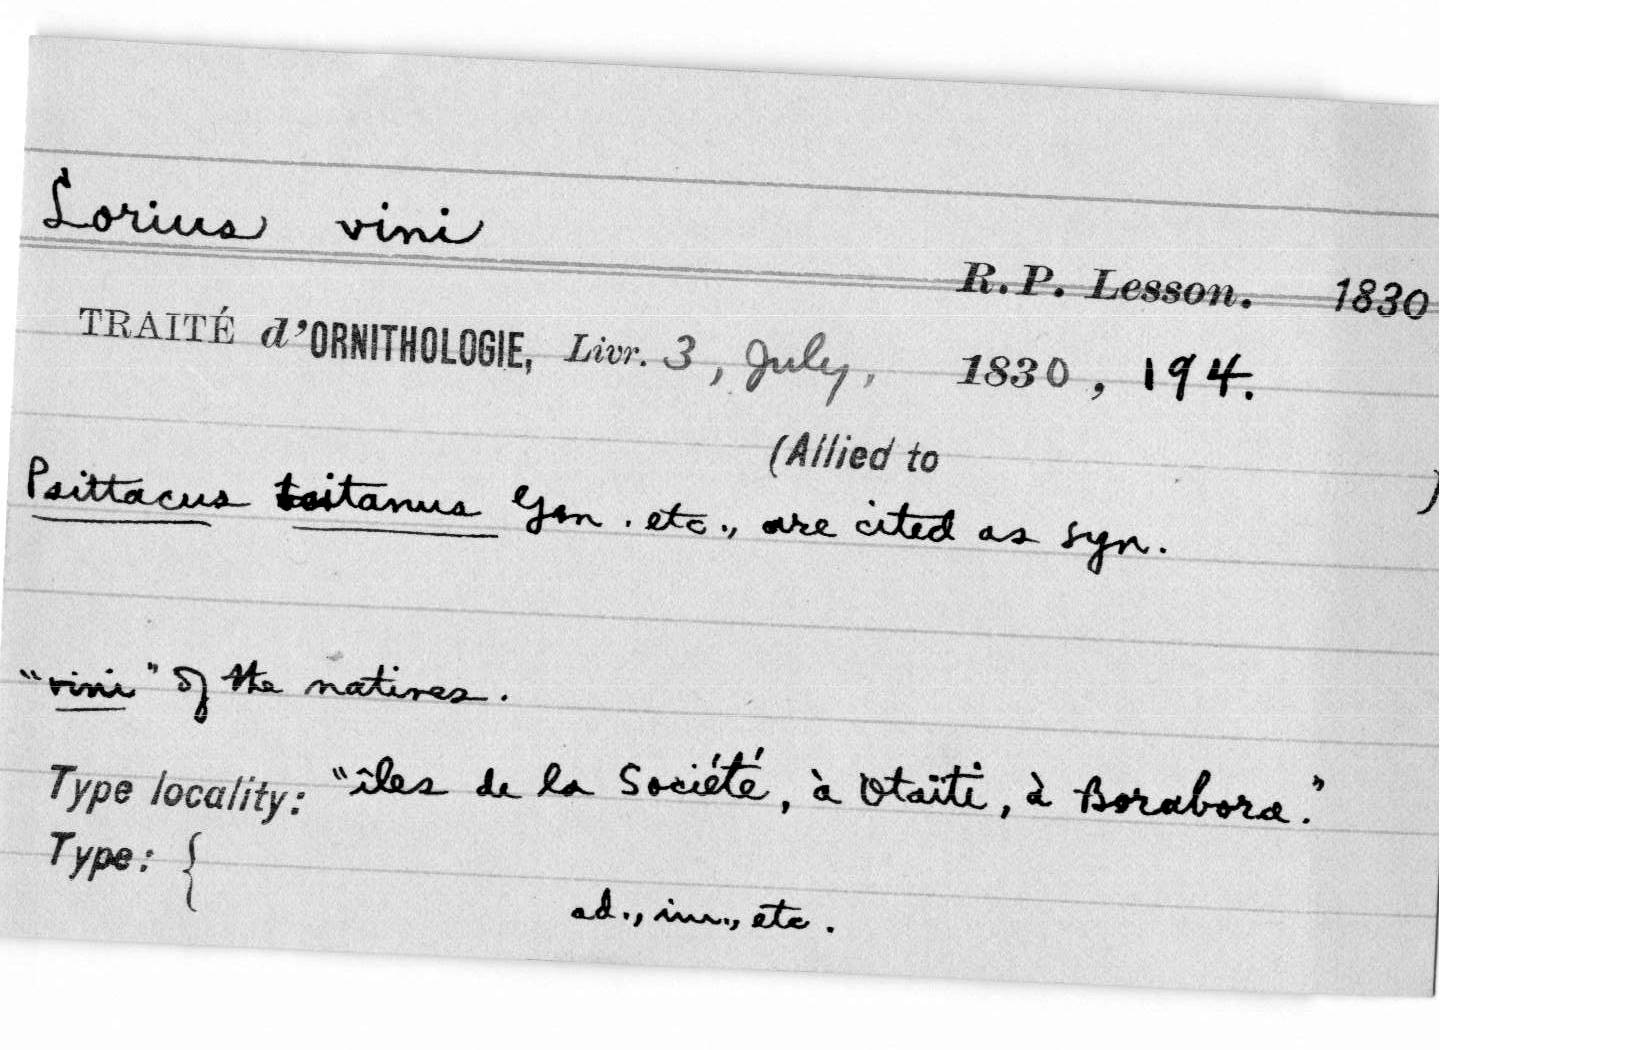 Lorius vini
R.P. Lesson. 1830
TRAITÉ d'ORNITHOLOGIE, Livr. 3, July, 1830, 194.
(Allied to )
Psittacus taitanus Gm. etc., are cited as syn.
"vini" of the natives.
Type locality: "îles de la Société, à Otaïti, à Borabora."
Type: {
ad., im., etc.